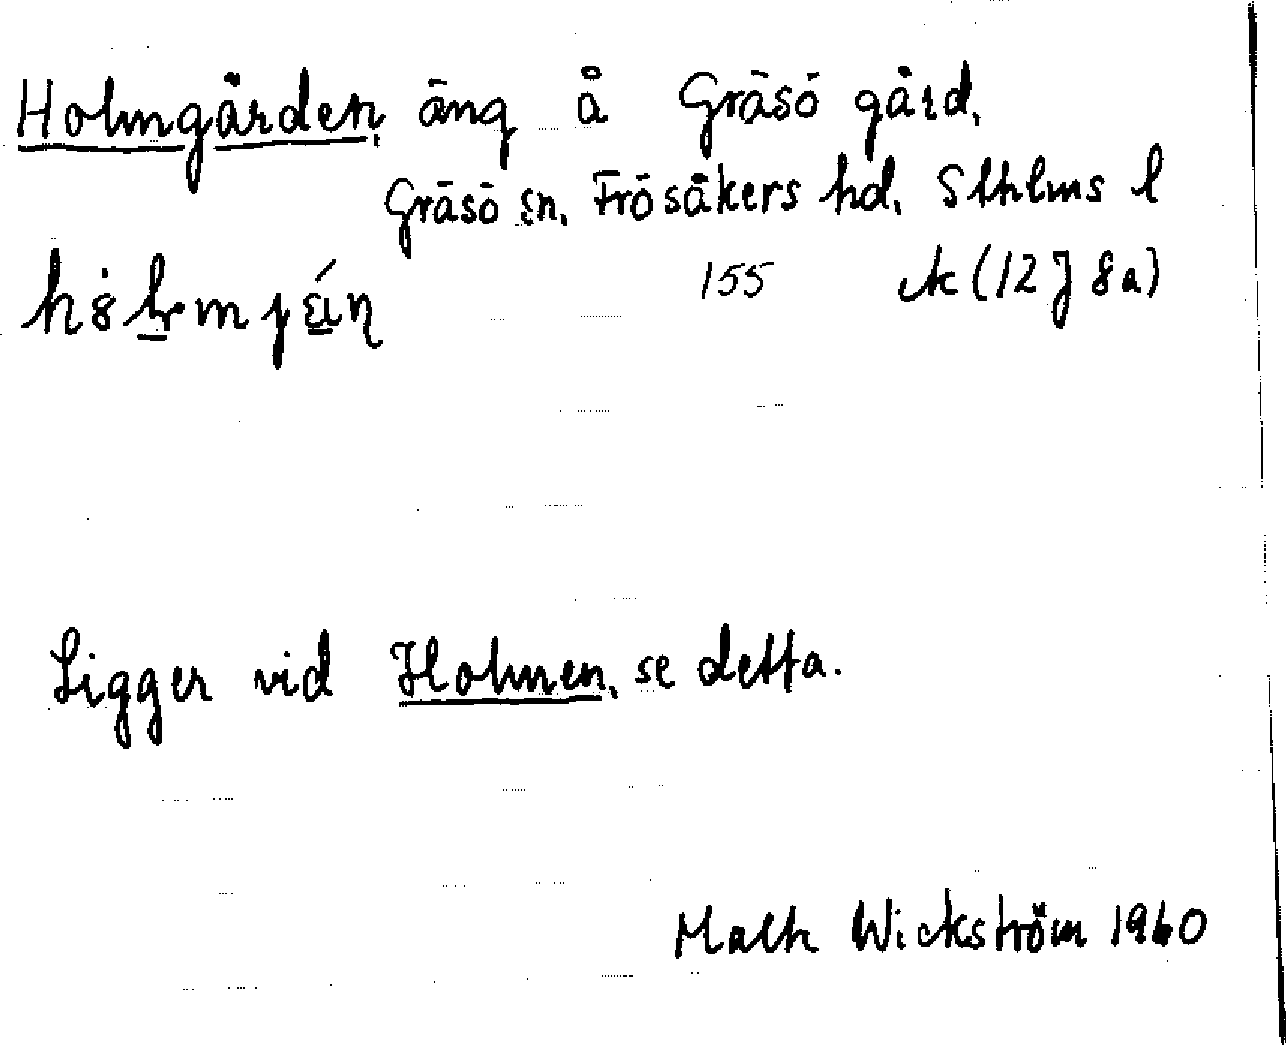 Holmgärden, äng å Gräsö gård,
Gräsö sn, Frösåkers hd, Sthlms l
155 ek (12 J 8a)
Ligger vid Holmen, se detta.
Math Wickström 1960